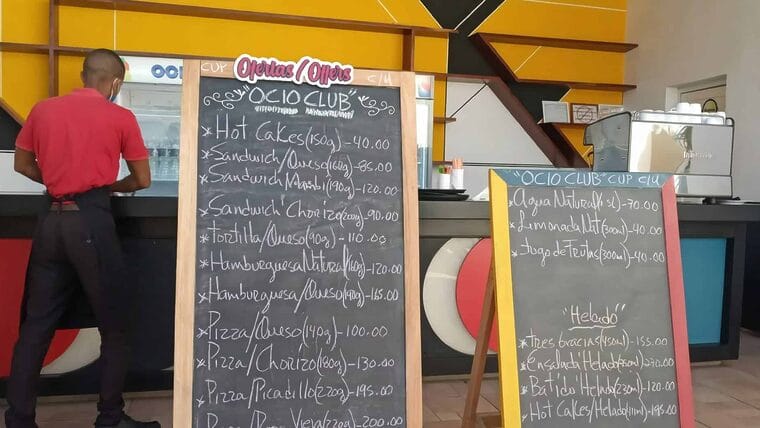 OCIO
CUP
Ofertas/Offers
C/U
"OCIO CLUB"
* Hot Cakes(150g)-40.00
* Sandwich/Queso(160g)-85.00
* Sandwich Mambi(190g)-120.00
* Sandwich Chorizo(200g)-90.00
* Tortilla/Queso(90g)-110.00
* Hamburguesa Natural(160g)-120.00
* Hamburguesa/Queso(190g)-165.00
* Pizza/Queso(140g)-100.00
* Pizza/Chorizo(180g)-130.00
* Pizza/Picadillo(220g)-195.00
Vieja(220g)-200.00
"OCIO CLUB" CUP C/U
* Agua Natural(1.5L)-70.00
* Limonada Nat(300ml)-40.00
* Jugo de Frutas(300ml)-40.00
"Helado"
* Tres Gracias(450ml)-155.00
* Ensalada Helado 270.00
* Batido Helado(230ml)-120.00
* Hot Cakes/Helado(111ml)-195.00